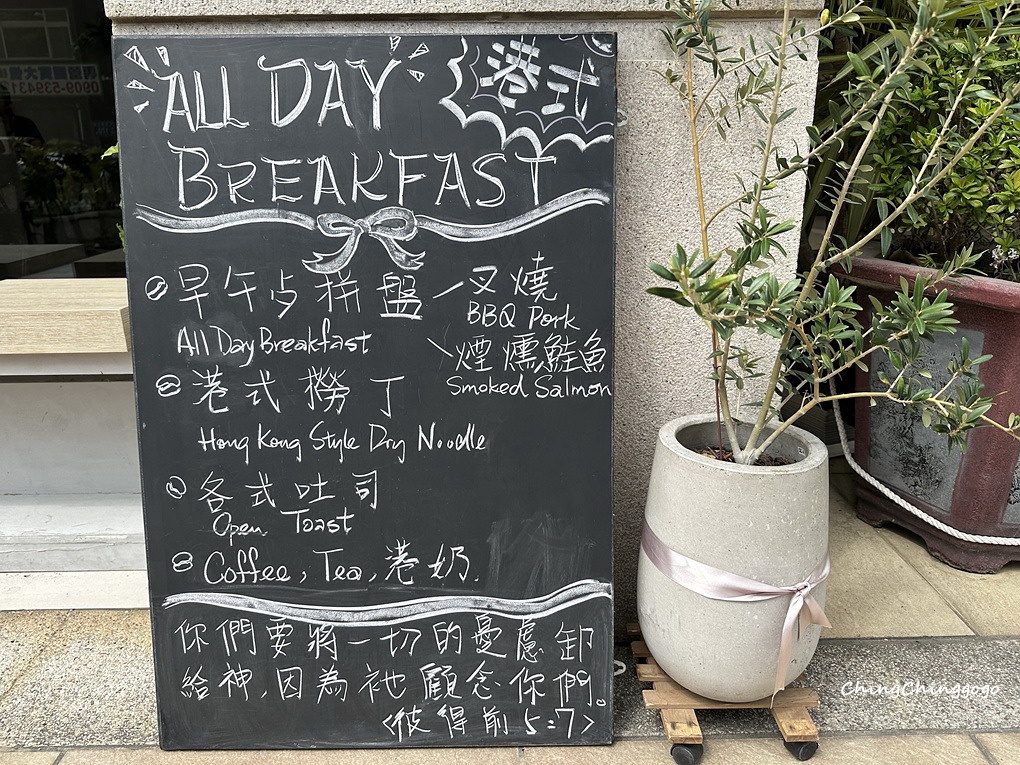 ALL DAY 港式
BREAKFAST
早午点拼盤 叉燒
All Day Breakfast BBQ Pork
煙燻鮭魚
Smoked Salmon
港式撈丁
Hong Kong Style Dry Noodle
各式吐司
Open Toast
Coffee, Tea, 港奶.
你們要將一切的憂慮卸
給神,因為祂顧念你們。
<彼得前5:7>
0909-539431
ChingChinggogo